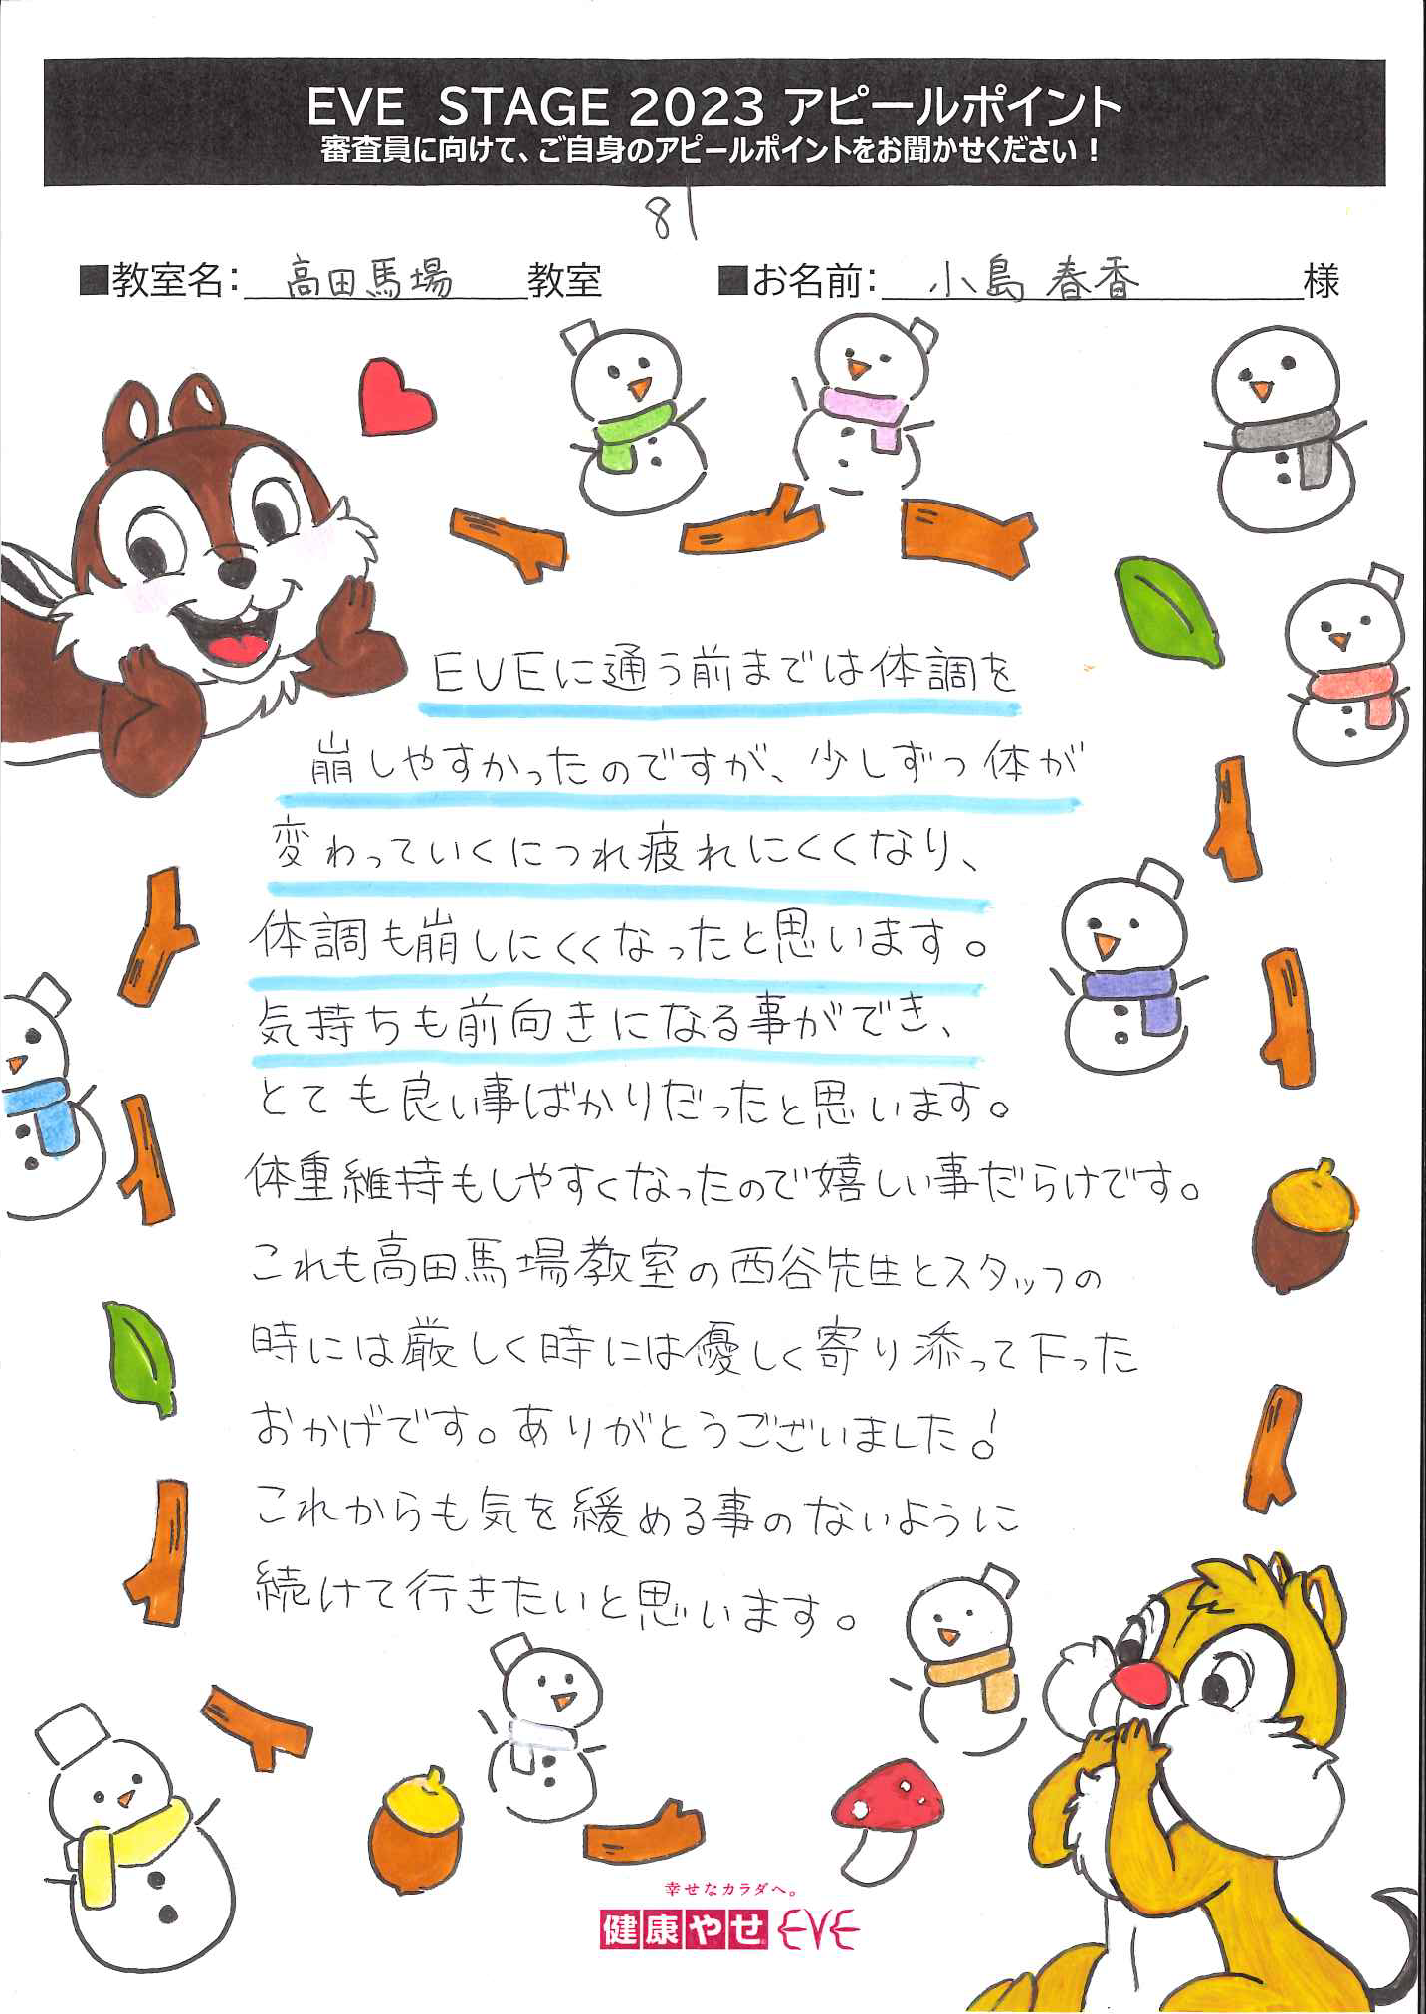 EVE STAGE 2023 アピールポイント
審査員に向けて、ご自身のアピールポイントをお聞かせください！
81
■教室名：高田馬場教室 ■お名前：小島 春香様
EVEに通う前までは体調を
崩しやすかったのですが、少しずつ体が
変わっていくにつれ疲れにくくなり、
体調も崩しにくくなったと思います。
気持ちも前向きになる事ができ、
とても良い事ばかりだったと思います。
体重維持もしやすくなったので嬉しい事だらけです。
これも高田馬場教室の西谷先生とスタッフの
時には厳しく時には優しく寄り添って下った
おかげです。ありがとうございました！
これからも気を緩める事のないように
続けて行きたいと思います。
幸せなカラダへ。
健康やせ EVE